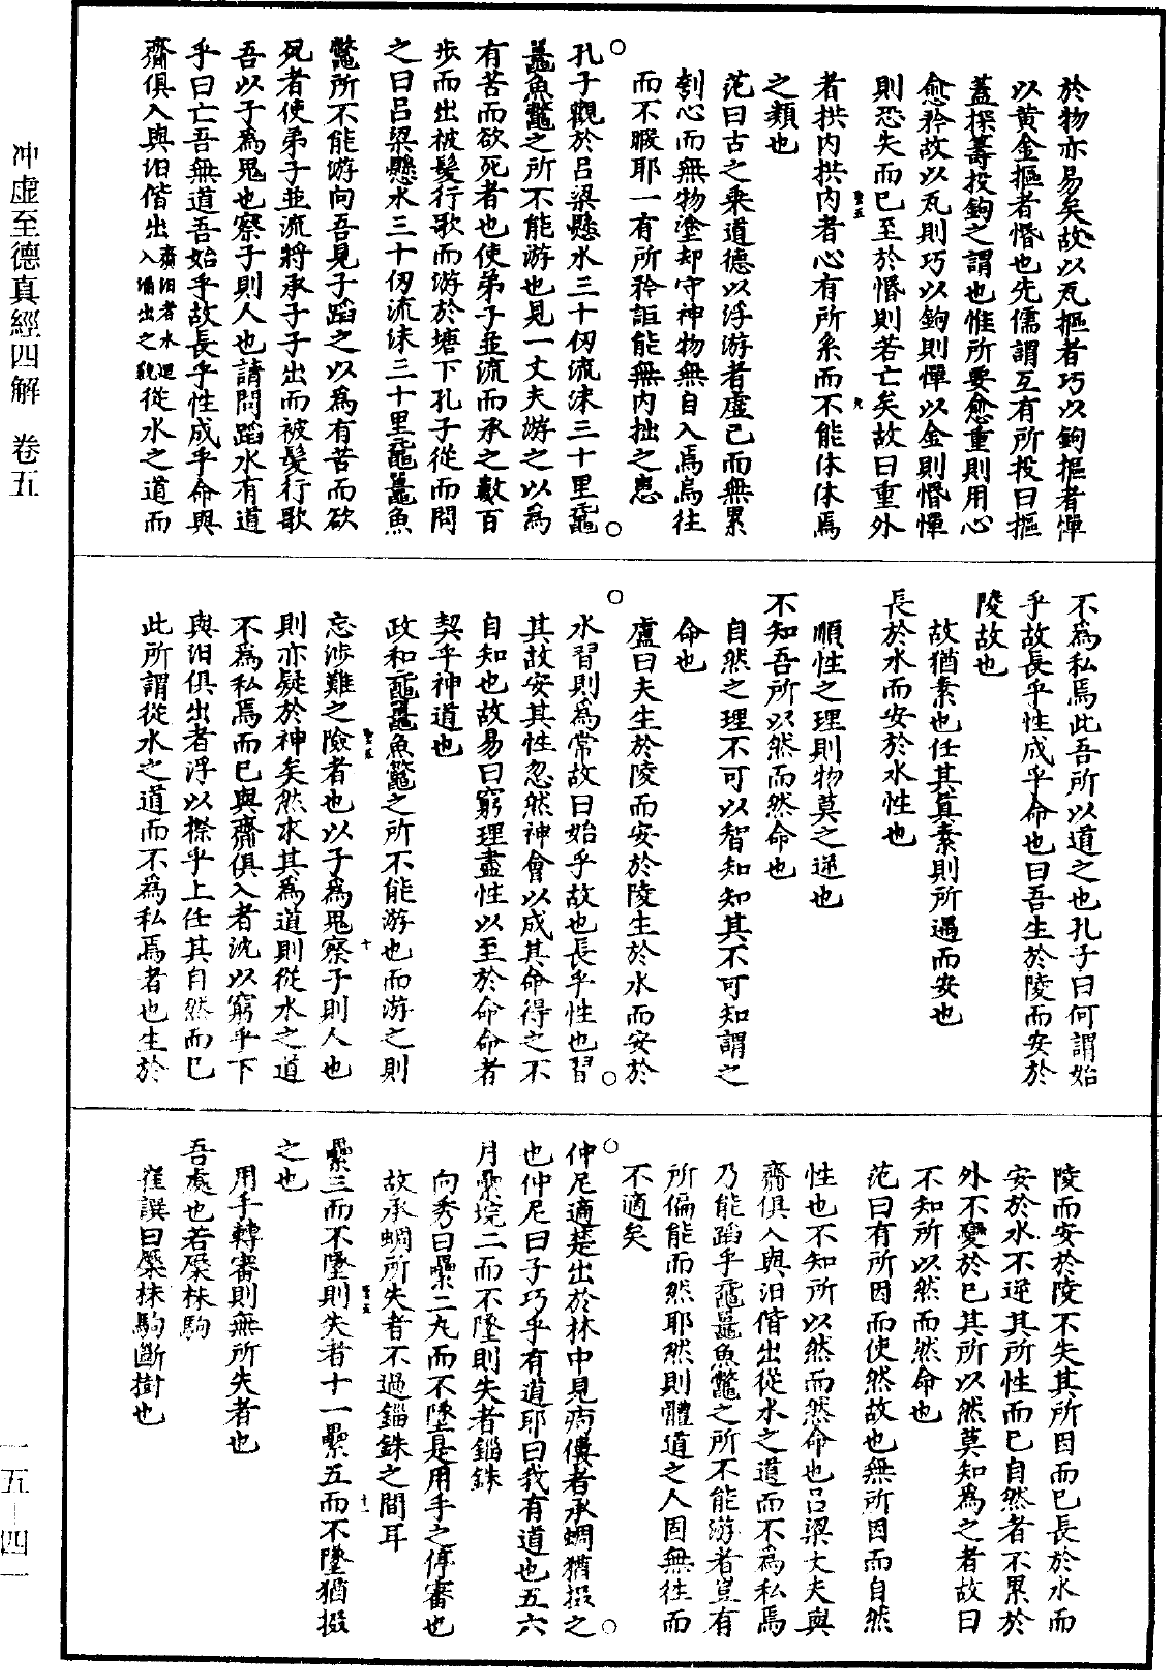 於物亦易矣故以瓦摳者巧以鉤摳者憚
以黃金摳者惛也先儒謂互有所投曰摳
蓋探籌投鉤之謂也惟所要愈重則用心
愈矜故以瓦則巧以鉤則憚以金則惛憚
則恐失而已至於惛則若亡矣故曰重外
者拱內拱內者心有所系而不能体体焉
之類也
范曰古之乘道德以浮游者虛己而無累
刳心而無物塗却守神物無自入焉烏往
而不暇耶一有所矜詎能無內拙之患
孔子觀於呂梁懸水三十仞流沫三十里黿
鼉魚鼈之所不能游也見一丈夫游之以為
有苦而欲死者也使弟子並流而承之數百
步而出被髮行歌而游於塘下孔子從而問
之曰呂梁懸水三十仞流沫三十里黿鼉魚
鼈所不能游向吾見子蹈之以為有苦而欲
死者使弟子並流將承子子出而被髮行歌
吾以子為鬼也察子則人也請問蹈水有道
乎曰亡吾無道吾始乎故長乎性成乎命與
齎俱入與汩偕出齎汩者水迴入涌出之貌從水之道而
不為私焉此吾所以道之也孔子曰何謂始
乎故長乎性成乎命也曰吾生於陵而安於
陵故也
故猶素也任其真素則所遇而安也
長於水而安於水性也
順性之理則物莫之逆也
不知吾所以然而然命也
自然之理不可以智知知其不可知謂之
命也
盧曰夫生於陵而安於陵生於水而安於
水習則為常故曰始乎故也長乎性也習
其故安其性忽然神會以成其命得之不
自知也故易曰窮理盡性以至於命命者
契乎神道也
政和黿鼉魚鼈之所不能游也而游之則
忘涉難之險者也以子為鬼察子則人也
則亦疑於神矣然求其為道則從水之道
不為私焉而已與齎俱入者沈以窮乎下
與汩俱出者浮以際乎上任其自然而已
此所謂從水之道而不為私焉者也生於
陵而安於陵不失其所因而已長於水而
安於水不逆其所性而已自然者不累於
外不變於己其所以然莫知為之者故曰
不知所以然而然命也
范曰有所因而使然故也無所因而自然
性也不知所以然而然命也呂梁丈夫與
齎俱入與汩偕出從水之道而不為私焉
乃能蹈乎黿鼉魚鼈之所不能游者豈有
所偏能而然耶然則體道之人固無往而
不適矣
仲尼適楚出於林中見痀僂者承蜩猶掇之
也仲尼曰子巧乎有道耶曰我有道也五六
月纍垸二而不墜則失者錙銖
向秀曰纍二丸而不墜是用手之停審也
故承蜩所失者不過錙銖之間耳
纍三而不墜則失者十一纍五而不墜猶掇
之也
用手轉審則無所失者也
吾處也若橜株駒
崔譔曰橜株駒斷樹也
冲虛至德真經四解 卷五
五—四